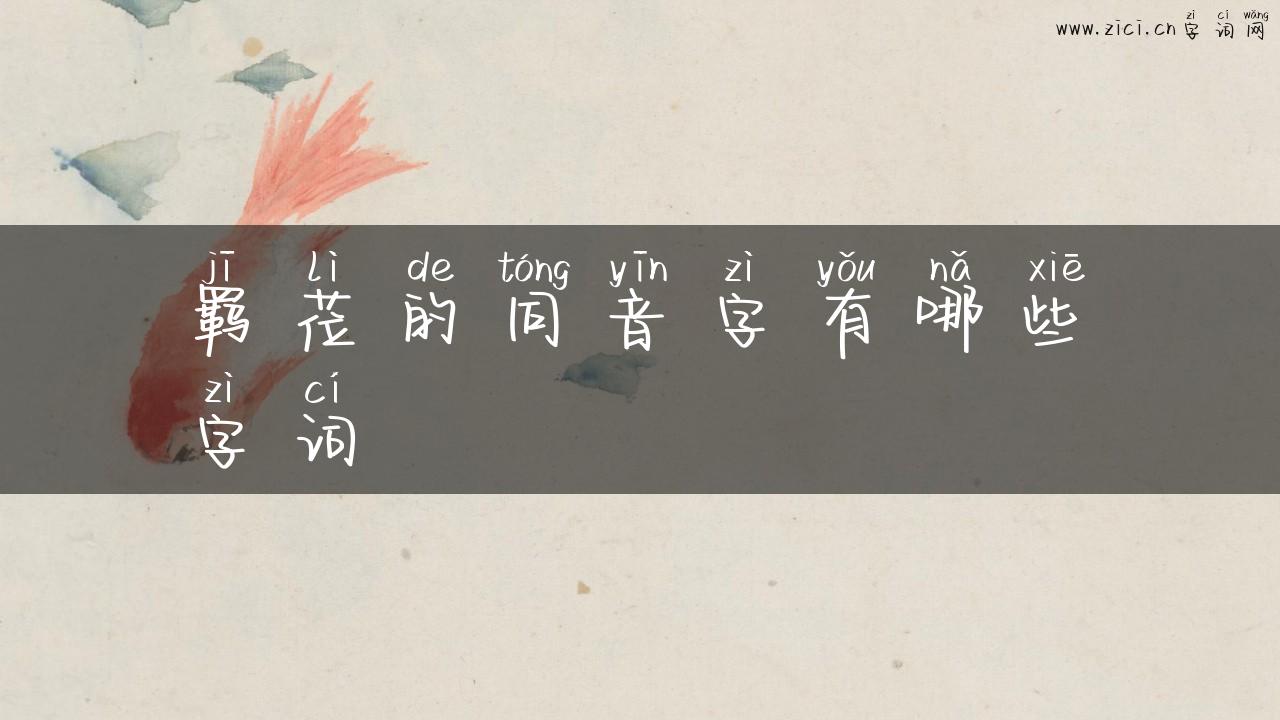 zì cí wǎng
www.zici.cn 字 词 网
jī lì de tóng yīn zì yǒu nǎ xiē
羁 莅 的 同 音 字 有 哪 些
zì cí
字 词